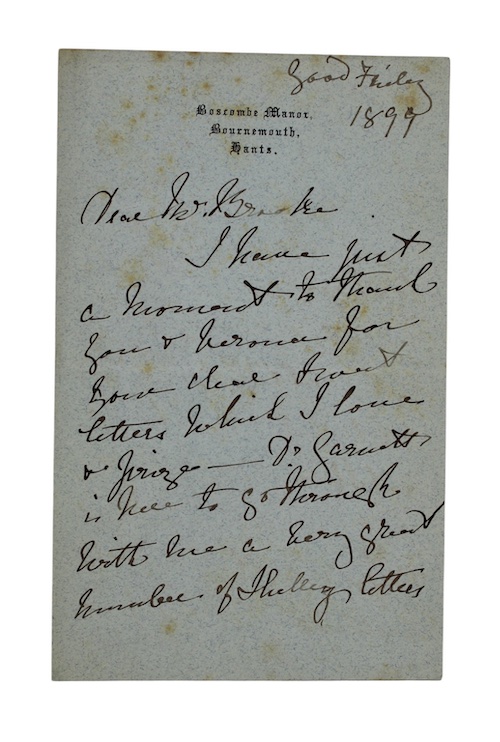 Good Friday
1899
Boscombe Manor,
Bournemouth,
Hants.
Dear Mr. Brooke
I have just
a moment to thank
you & Verona for
your dear sweet
letters which I love
& prize — Dr Garnett
is here to go through
with me a very great
number of Shelley letters